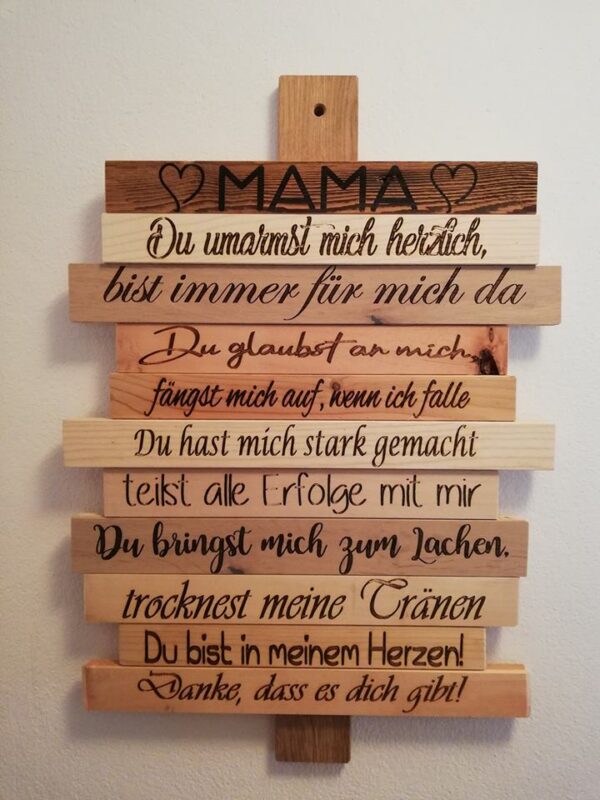 ♡ MAMA ♡
Du umarmst mich herzlich,
bist immer für mich da
Du glaubst an mich,
fängst mich auf, wenn ich falle
Du hast mich stark gemacht
teilst alle Erfolge mit mir
Du bringst mich zum Lachen,
trocknest meine Tränen
Du bist in meinem Herzen!
Danke, dass es dich gibt!